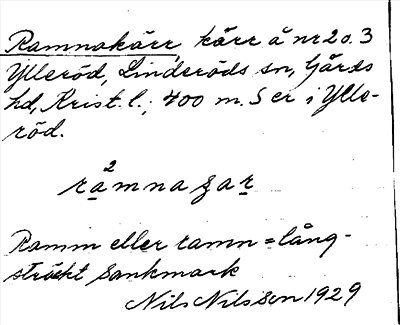 Ramnakärr, kärr å nr 2 o. 3
Ylleröd, Linderöds sn, Gärds
hd, Krist. l.; 400 m. S er i Ylle-
röd.
2
ramna
Ramm eller ramn = lång-
sträckt sankmark
Nils Nilsson 1929